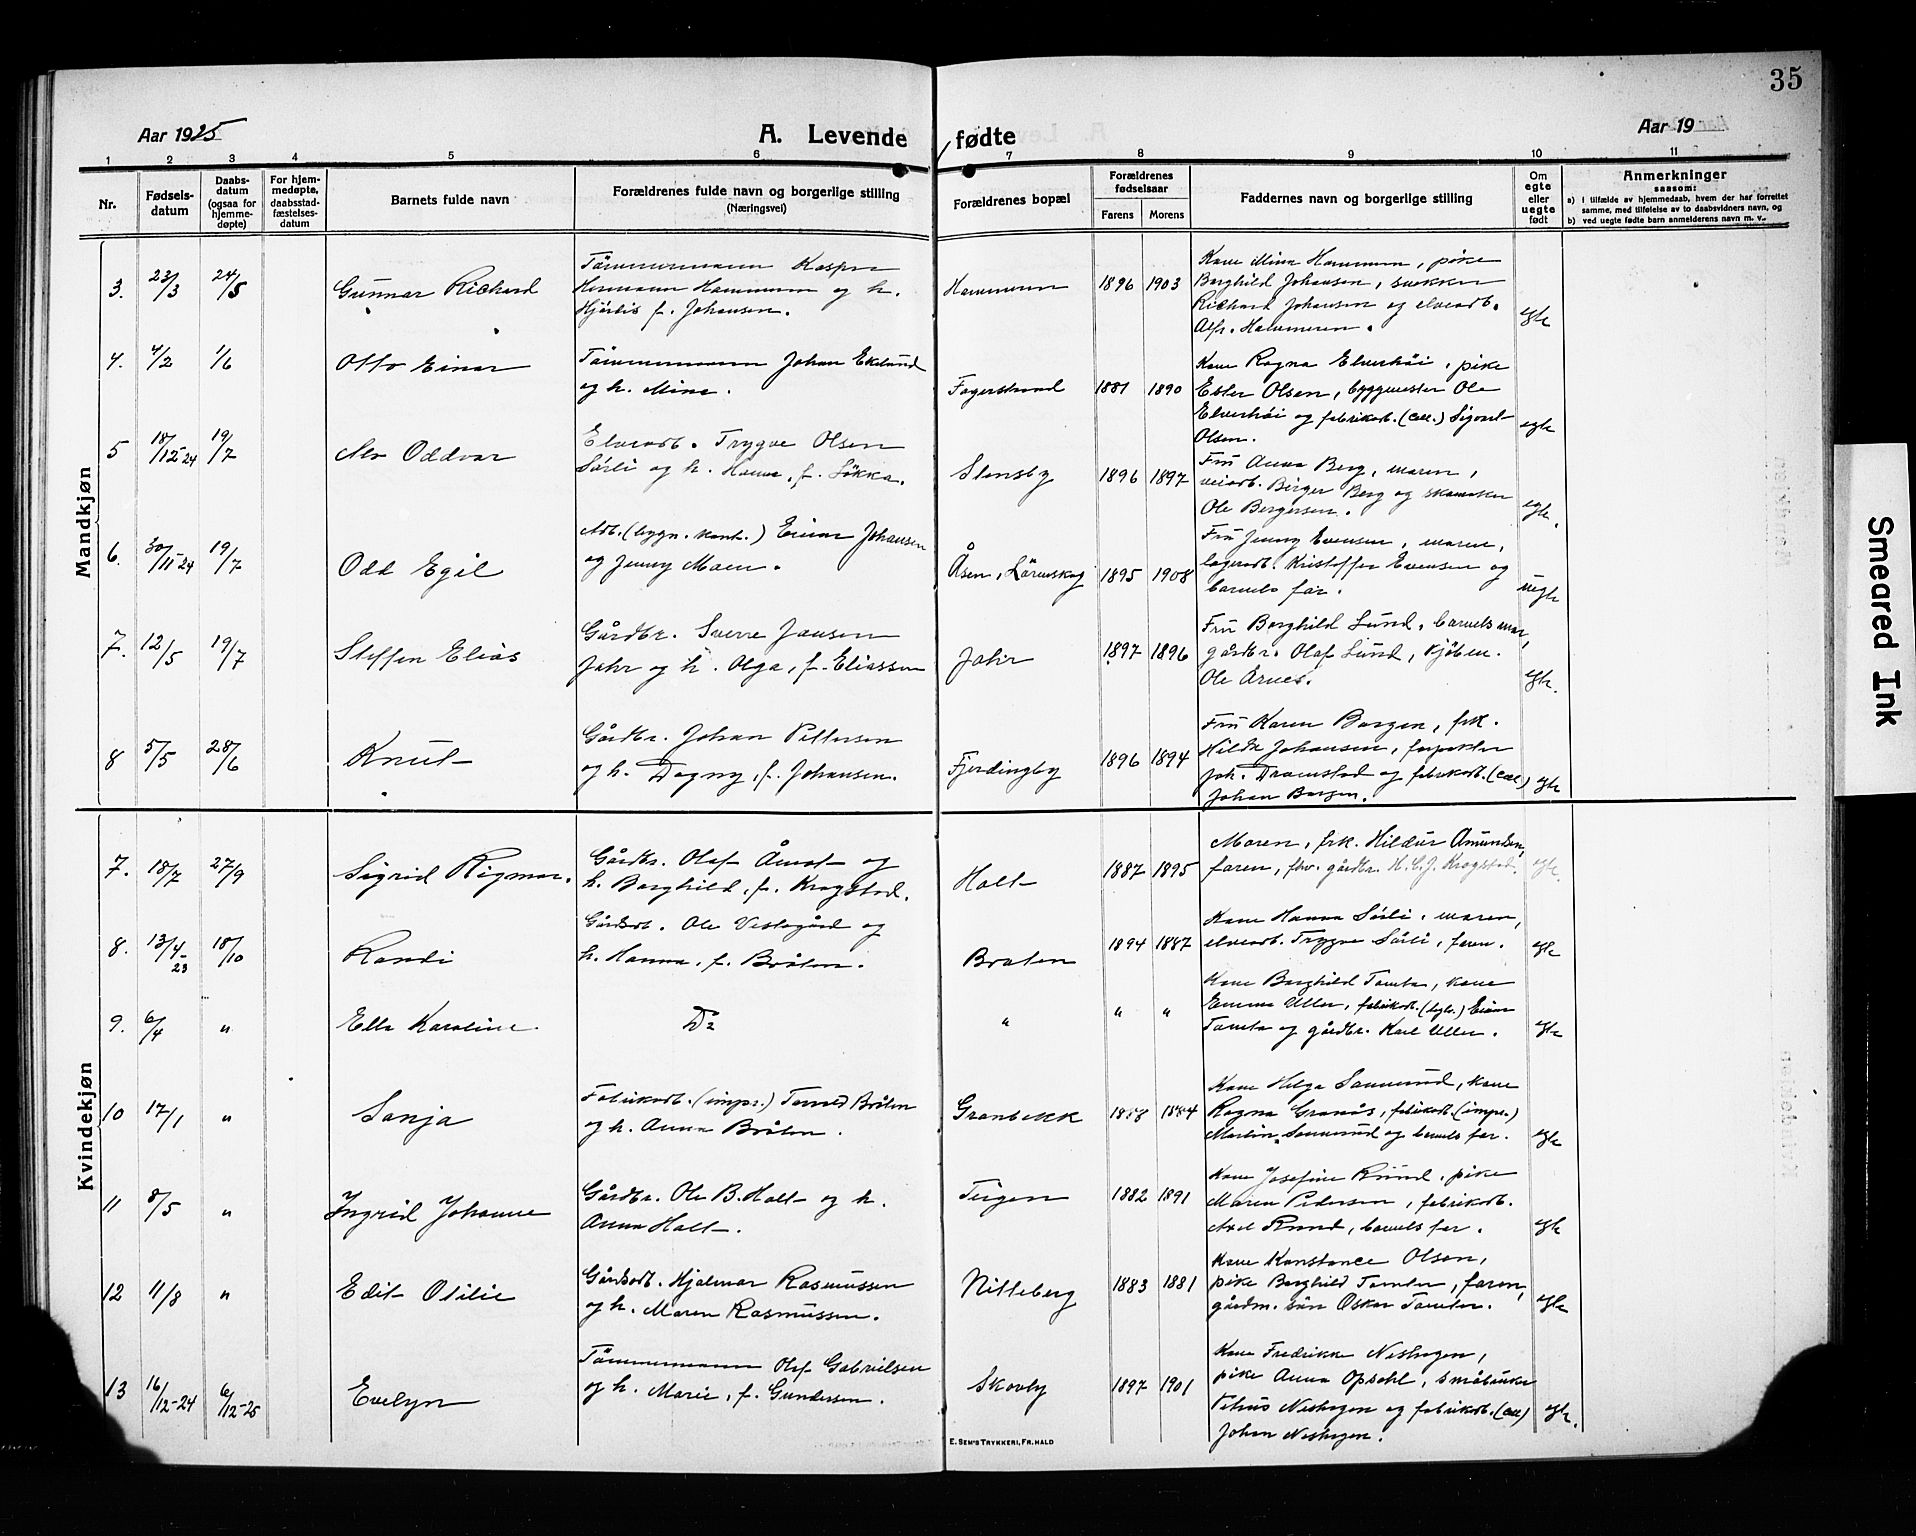 35
Aar 1925
A. Levende fødte
Aar 19
1 2 3 4 5 6 7 8 9 10 11
Nr.
Fødsels-
datum
Daabs-
datum
(ogsaa for
hjemme-
døpte)
For hjem-
medøpte,
daabsstad-
fæstelses-
datum
Barnets fulde navn
Forældrenes fulde navn og borgerlige stilling
(Næringsvei)
Forældrenes bopæl
Forældrenes
fødselsaar
Farens Morens
Faddernes navn og borgerlige stilling
Om
egte
eller
uegte
født
Anmerkninger
saasom:
a) i tilfælde av hjemmedaab, hvem der har forrettet
samme, med tilføielse av to daabsvidners navn, og
b) ved uegte fødte barn anmelderens navn m. v.
Mandkjøn
3. 23/3 24/5 Gunnar Richard
Tömmermann Kaspar
Hermann Hammeren og h.
Hjördis f. Johansen.
Hammeren 1896 1903
Kone Mina Hammeren, pike
Borghild Johansen, snekker
Richard Johansen og elvearb.
Alfr. Hammeren.
egte
4. 4/2 1/6 Otto Einar
Tömmermann Johan Eklund
og h. Mina.
Fagerstrand 1881 1890
Kone Ragna Elverhöi, pike
Ester Olsen, byggmester Ole
Elverhöi og fabrikarb. (cell.) Sigurd
Olsen.
egte
5 18/12-24 19/7 Alv Oddvar
Elvearb. Trygve Olsen
Sörli og h. Hanna, f. Lökka.
Stensby 1896 1897
Fru Anna Berg, moren,
veiarb. Birger Berg og skomaker
Ole Bergersen.
egte.
6. 30/11-24 19/7 Odd Egil
Arb. (bygn. kont.) Einar Johansen
og Jenny Moen.
Åsen, Lörenskog 1895 1908
Fru Jenny Evensen, moren,
lagerarb. Kristoffer Evensen og
barnets far.
uegte
7. 12/5 19/7 Steffen Elias
Gårdbr. Sverre Jansen
Jahr og h. Olga, f. Eliassen
Jahr 1897 1896
Fru Borghild Lund, barnets mor,
gårdbr. Olaf Lund, kjöbm.
Ole Årnes.
egte.
8 5/5 28/6 Knut
Gårdbr. Johan Pettersen
og h. Dagny, f. Johansen.
Fjerdingby 1896 1894
Fru Karen Borgen, frk.
Hilda Johansen, forpakter
Joh. Dramstad og fabrikarb. (cell)
Johan Borgen.
egte
Kvindekjøn
7. 18/7 27/9 Sigrid Rigmor.
Gårdbr. Olaf Åmot og
h. Borghild, f. Krogstad.
Holt 1887 1895
Moren, frk. Hildur Amundsen,
faren, fhv. gårdbr. H. C. J. Krogstad.
egte.
8. 13/4-23 18/10 Randi
Gårdsarb. Ole Vestegård og
h. Hanna, f. Bråten.
Braten 1894 1887
Kone Hanna Sörli, moren,
elvearb. Trygve Sörli, faren.
egte
9. 6/4 " Ella Karoline.
Do
" " "
Kone Borghild Tomta, kone
Emma Uller, fabrikarb. (tegl.) Einar
Tomta og gårdbr. Karl Uller.
egte
10 17/1 " Sonja
Fabrikarb. (impr.) Tomod Bråten
og h. Anna Bråten.
Granbekk 1888 1884
Kone Helga Sannerud, kone
Ragna Granås, fabrikarb. (impr.)
Martin Sannerud og barnets far.
egte
11 8/5 " Ingrid Johanne
Gårdbr. Ole B. Holt og h.
Anna Holt.
Teigen 1882 1891
Kone Josefine Rund, pike
Maren Pedersen, fabrikarb.
Axel Rund, barnets far.
egte
12 11/8 " Edit Otilie
Gårdsarb. Hjalmar Rasmussen
og h. Maren Rasmussen.
Nitteberg 1883 1881
Kone Konstance Olsen,
pike Borghild Tomter, faren,
gårdm. sön Oskar Tomter.
egte
13 16/12-24 6/12-25 Evelyn
Tömmermann Olaf Gabrielsen
og h. Marie, f. Gundersen.
Skovly 1897 1901
Kone Fredrikke Neshagen,
pike Anna Opsahl, småbruker
Petrus Neshagen og fabrikarb. (cell)
Johan Neshagen.
egte.
E. SEM'S TRYKKERI, FR.HALD
Smeared Ink